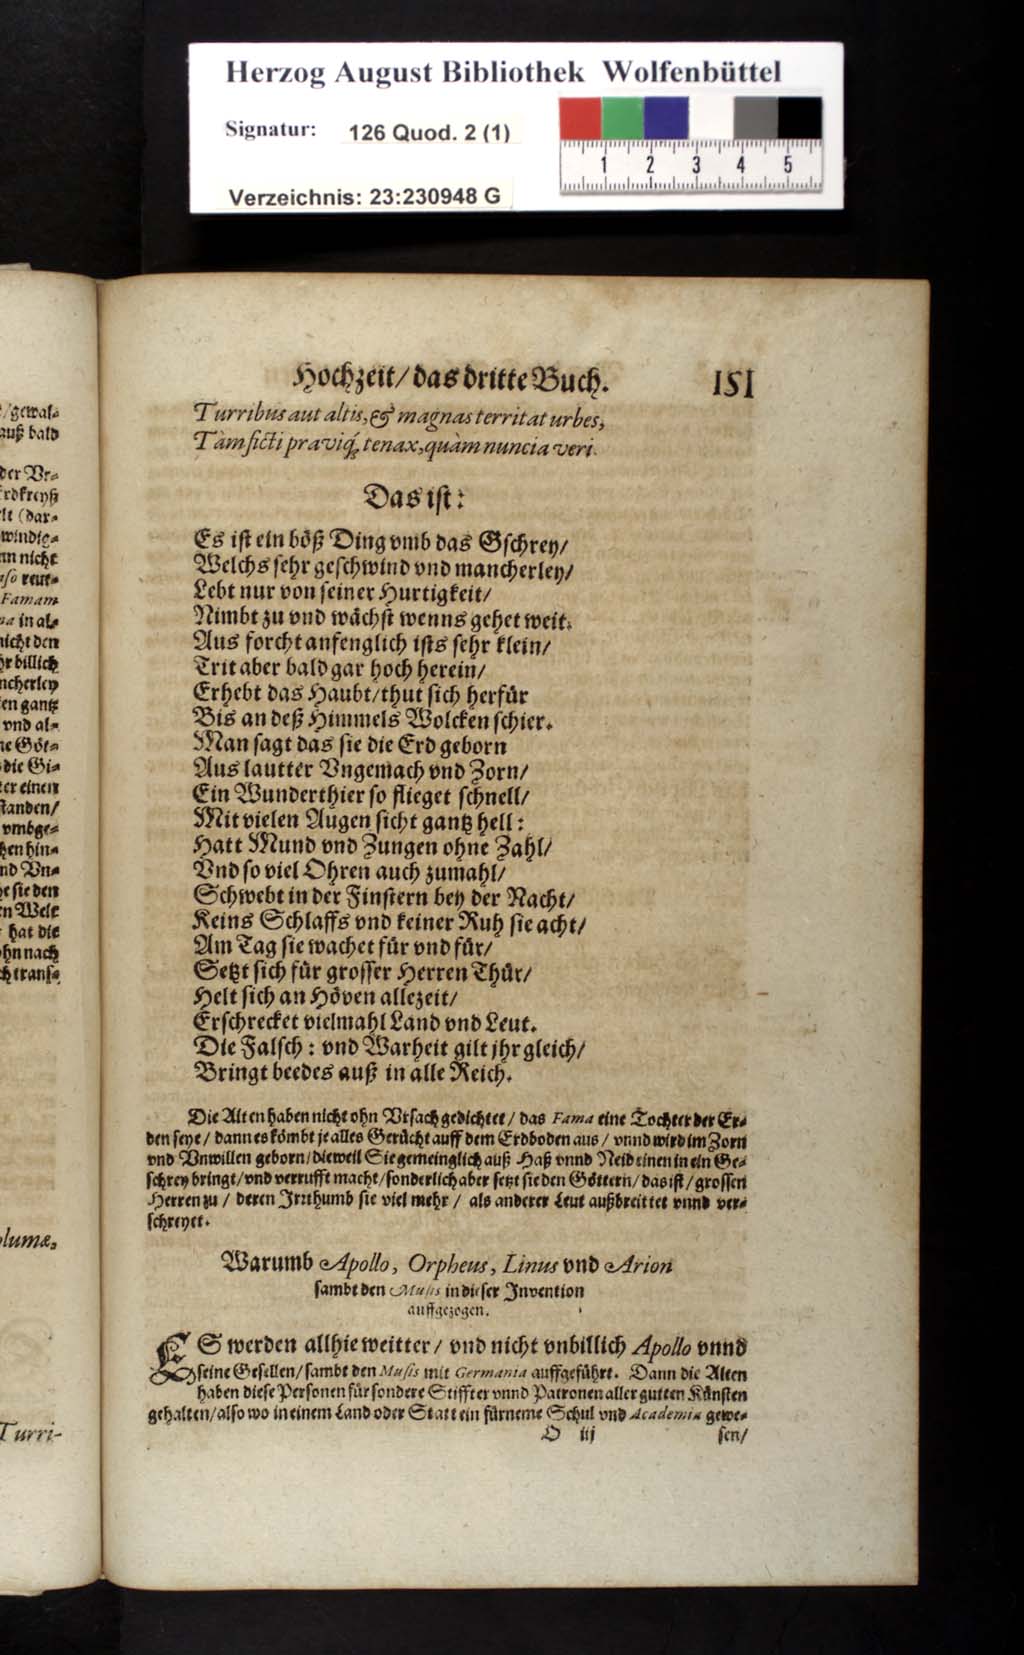 Herzog August Bibliothek Wolfenbüttel
Signatur: 126 Quod. 2 (1)
1 2 3 4 5
Verzeichnis: 23:230948 G
Hochzeit/ das dritte Buch. 151
Turribus aut altis, & magnas territat urbes,
Tàm ficti praviq́; tenax, quàm nuncia veri.
Das ist:
Es ist ein böß Ding vmb das Gschrey/
Welchs sehr geschwind vnd mancherley/
Lebt nur von seiner Hurtigkeit/
Nimbt zu vnd wächst wenns gehet weit.
Aus forcht anfenglich ists sehr klein/
Trit aber bald gar hoch herein/
Erhebt das Haubt/ thut sich herfür
Bis an deß Himmels Wolcken schier.
Man sagt das sie die Erd geborn
Aus lautter Vngemach vnd Zorn/
Ein Wunderthier so flieget schnell/
Mit vielen Augen sicht gantz hell:
Hatt Mund vnd Zungen ohne Zahl/
Vnd so viel Ohren auch zumahl/
Schwebt in der Finstern bey der Nacht/
Keins Schlaffs vnd keiner Ruh sie acht/
Am Tag sie wachet für vnd für/
Setzt sich für grosser Herren Thür/
Helt sich an Höven allezeit/
Erschrecket vielmahl Land vnd Leut.
Die Falsch: vnd Warheit gilt jhr gleich/
Bringt beedes auß in alle Reich.
Die Alten haben nicht ohn Vrsach gedichtet/ das Fama eine Tochter der Er-
den seye/ dann es kömbt je alles Gerücht auff dem Erdboden aus/ vnnd wird im Zorn
vnd Vnwillen geborn/ dieweil Sie gemeinglich auß Haß vnnd Neid einen in ein Ge-
schrey bringt/ vnd verrufft macht/ sonderlich aber setzt sie den Göttern/ das ist/ grossen
Herren zu/ deren Irrthumb sie viel mehr/ als anderer Leut außbreittet vnnd ver-
schreyet.
Warumb Apollo, Orpheus, Linus vnd Arion
sambt den Musis in dieser Invention
auffgezogen.
ES werden allhie weitter/ vnd nicht vnbillich Apollo vnnd
seine Gesellen/ sambt den Musis mit Germania auffgeführt. Dann die Alten
haben diese Personen für sondere Stiffter vnnd Patronen aller gutten Künsten
gehalten/ also wo in einem Land oder Statt ein fürneme Schul vnd Academia gewe-
O iij sen/